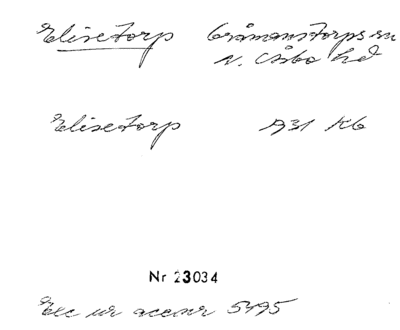 Elisetorp Gråmanstorps sn
N. Åsbo hd
Elisetorp 1931 Kb
Nr 23034
Exc ur accnr 5495